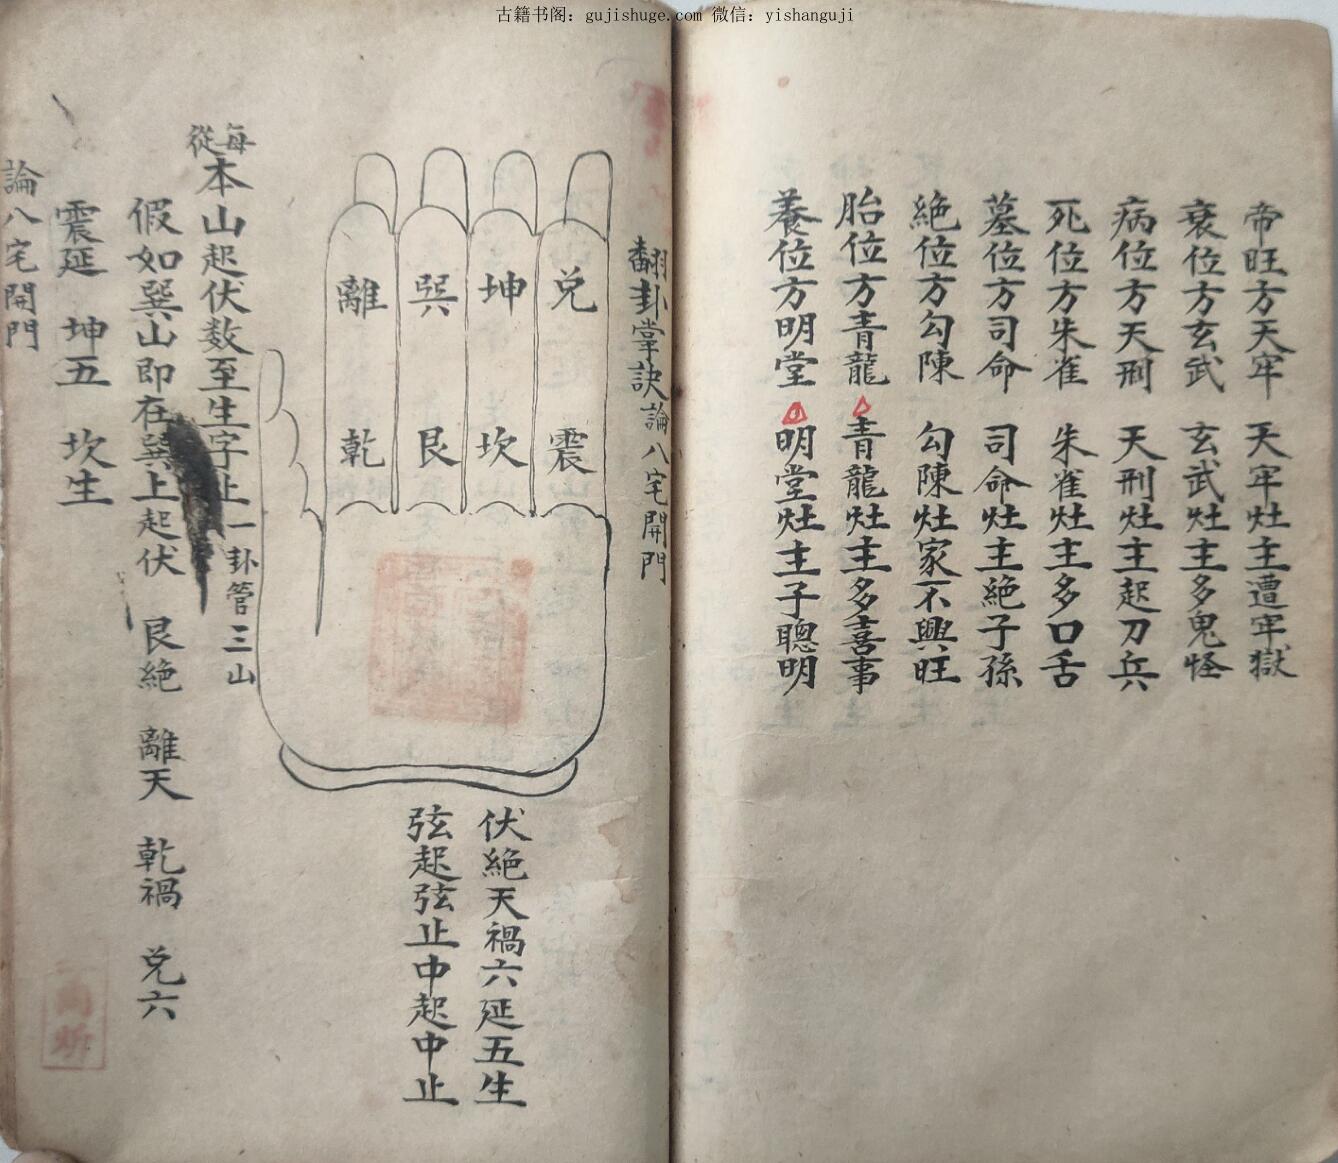 古籍书阁：gujishuge.com 微信：yishanguji
帝旺方天牢 天牢灶主遭牢獄
衰位方玄武 玄武灶主多鬼怪
病位方天刑 天刑灶主起刀兵
死位方朱雀 朱雀灶主多口舌
墓位方司命 司命灶主絕子孫
絕位方勾陳 勾陳灶家不興旺
胎位方青龍 青龍灶主多喜事
養位方明堂 明堂灶主子聰明
翻卦掌訣論八宅開門
兌 震
坤 坎
巽 艮
離 乾
伏絕天禍六延五生
弦起弦止中起中止
每從本山起伏数至生字止一卦管三山
假如巽山即在巽上起伏 艮絕 離天 乾禍 兌六
震延 坤五 坎生
論八宅開門